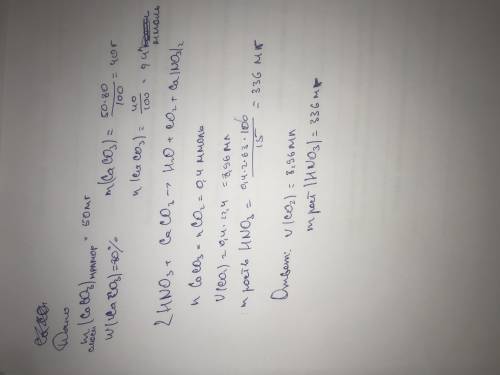 Дано
m (CaCO3) мрамор = 50 мг
смеси
W(CaCO3)=80%
m(CaCO3) = 50·80/100 = 40г
n(CaCO3) = 40/100 = 0,4 ммоль
2HNO3 + CaCO3 → H2O + CO2 + Ca(NO3)2
n CaCO3 = n CO2 = 0,4 ммоль
V(CO2) = 0,4·22,4 = 8,96 мл
m раств HNO3 = 0,4·2·63·100/15 = 336 мг
Ответ: V(CO2) = 8,96 мл
m раст (HNO3) = 336 мг